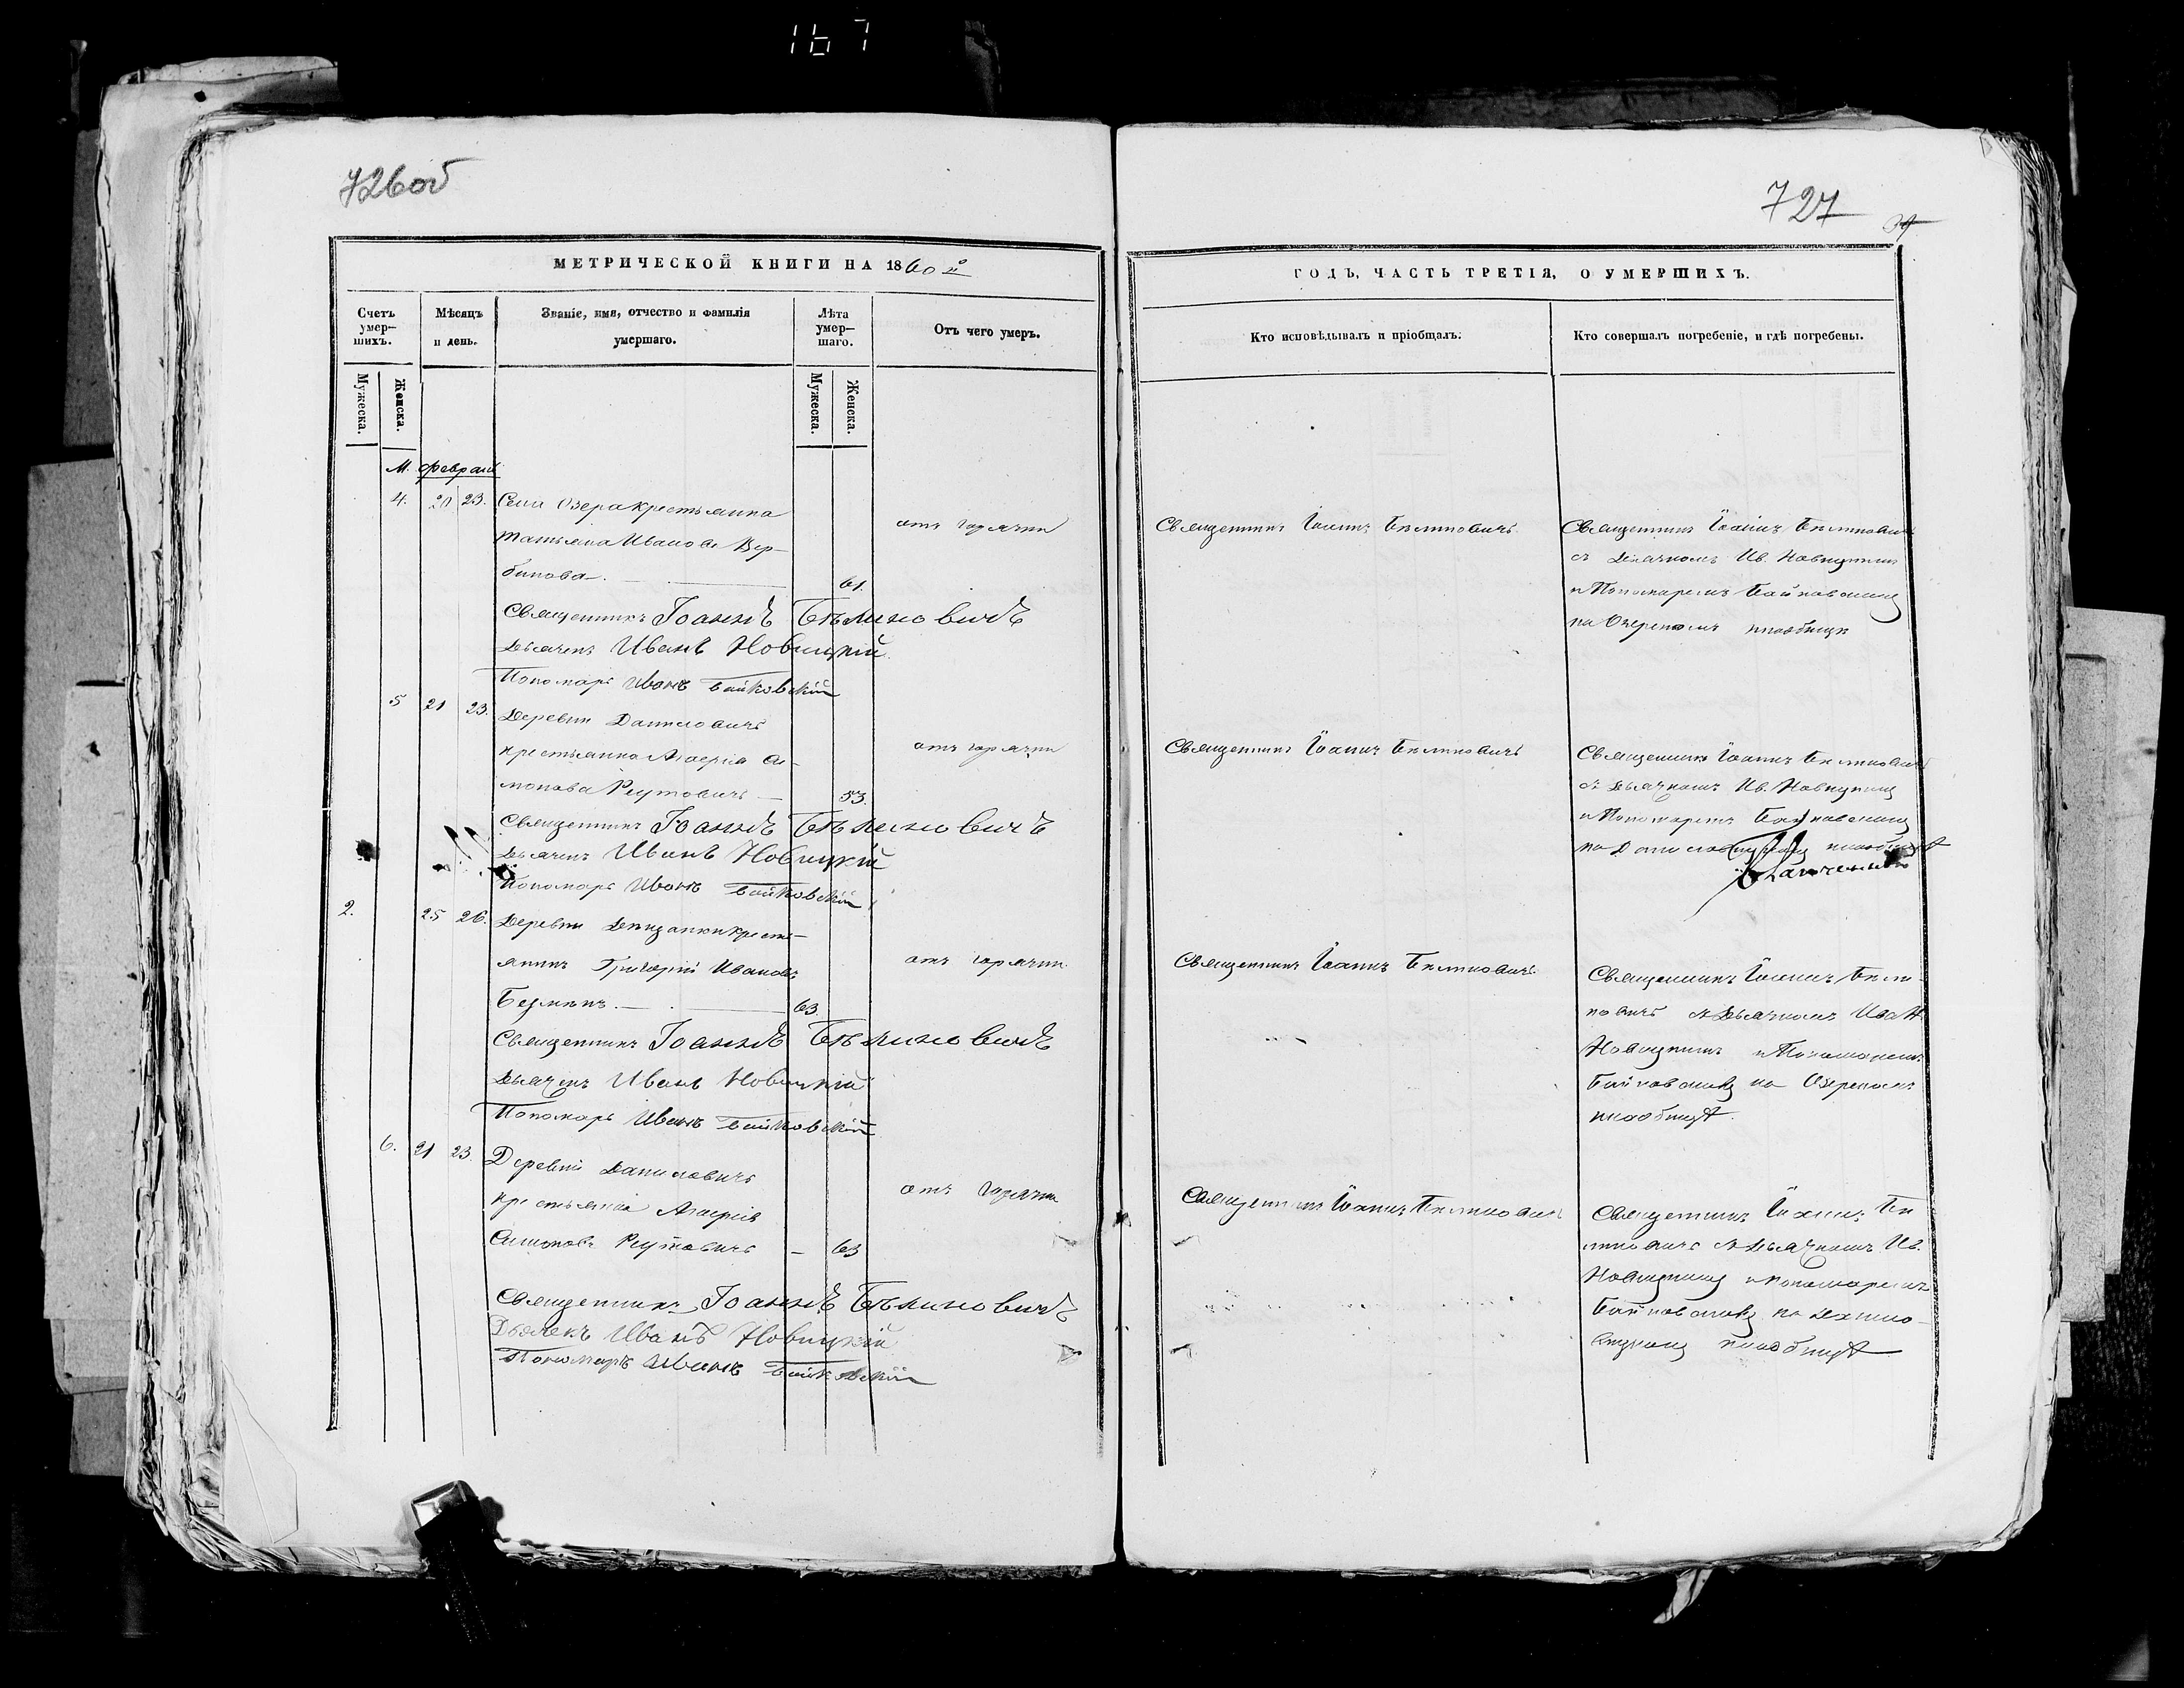 167
726об
МЕТРИЧЕСКОЙ КНИГИ НА 1860й
Счетъ умер-шихъ.
Мѣсяцъ и день.
Званіе, имя, отчество и фамилія умершаго.
Лѣта умер-шаго.
Отъ чего умеръ.
Мужеска.
Женска.
Мужеска.
Женска.
М. Февраль
4. 20 23. Села Озера крестьянка
Татьяна Иванова Вер-
бикова. 61.
отъ горячки
Священникъ Іоаннъ Бѣлиновичъ
Дьячекъ Иванъ Новицкій
Пономарь Иванъ Байковскій
5 21 23. Деревни Даниловичъ
крестьянка Агаѳія Си-
монова Реутовичъ 53.
отъ горячки
Священникъ Іоаннъ Бѣлиновичъ
Дьячекъ Иванъ Новицкій
Пономарь Иванъ Байковскій
2. 25 26. Деревни крестья-
янинъ Григорій Ивановъ
63.
отъ горячки
Священникъ Іоаннъ Бѣлиновичъ
Дьячекъ Иванъ Новицкій
Пономарь Иванъ Байковскій
6. 21 23. Деревни Даниловичъ
крестьянка Агаѳія
Симонова Реутовичъ 63
отъ горячки
Священникъ Іоаннъ Бѣлиновичъ
Дьячекъ Иванъ Новицкій
Пономарь Иванъ Байковскій
727
ГОДЪ, ЧАСТЬ ТРЕТІЯ, О УМЕРШИХЪ.
Кто исповѣдывалъ и пріобщалъ.
Кто совершалъ погребеніе, и гдѣ погребены.
Священникъ Іоаннъ Бѣлиновичъ
Священникъ Іоаннъ Бѣлиновичъ
съ Дьячкомъ Ив. Новицкимъ
и Пономаремъ Байковскимъ
на Озерскомъ кладбищѣ
Священникъ Іоаннъ Бѣлиновичъ
Священникъ Іоаннъ Бѣлиновичъ
съ Дьячкомъ Ив. Новицкимъ
и Пономаремъ Байковскимъ
на Даниловицкомъ кладбищѣ
Священникъ Іоаннъ Бѣлиновичъ
Священникъ Іоаннъ Бѣли-
новичъ съ Дьячкомъ Иван.
Новицкимъ и Пономаремъ
Байковскимъ на Озерскомъ
кладбищѣ.
Священникъ Іоаннъ Бѣлиновичъ
Священникъ Іоаннъ Бѣ
линовичъ съ Дьячкомъ Ив.
Новицкимъ и Пономаремъ
Байковскимъ на Данило-
вицкомъ кладбищѣ